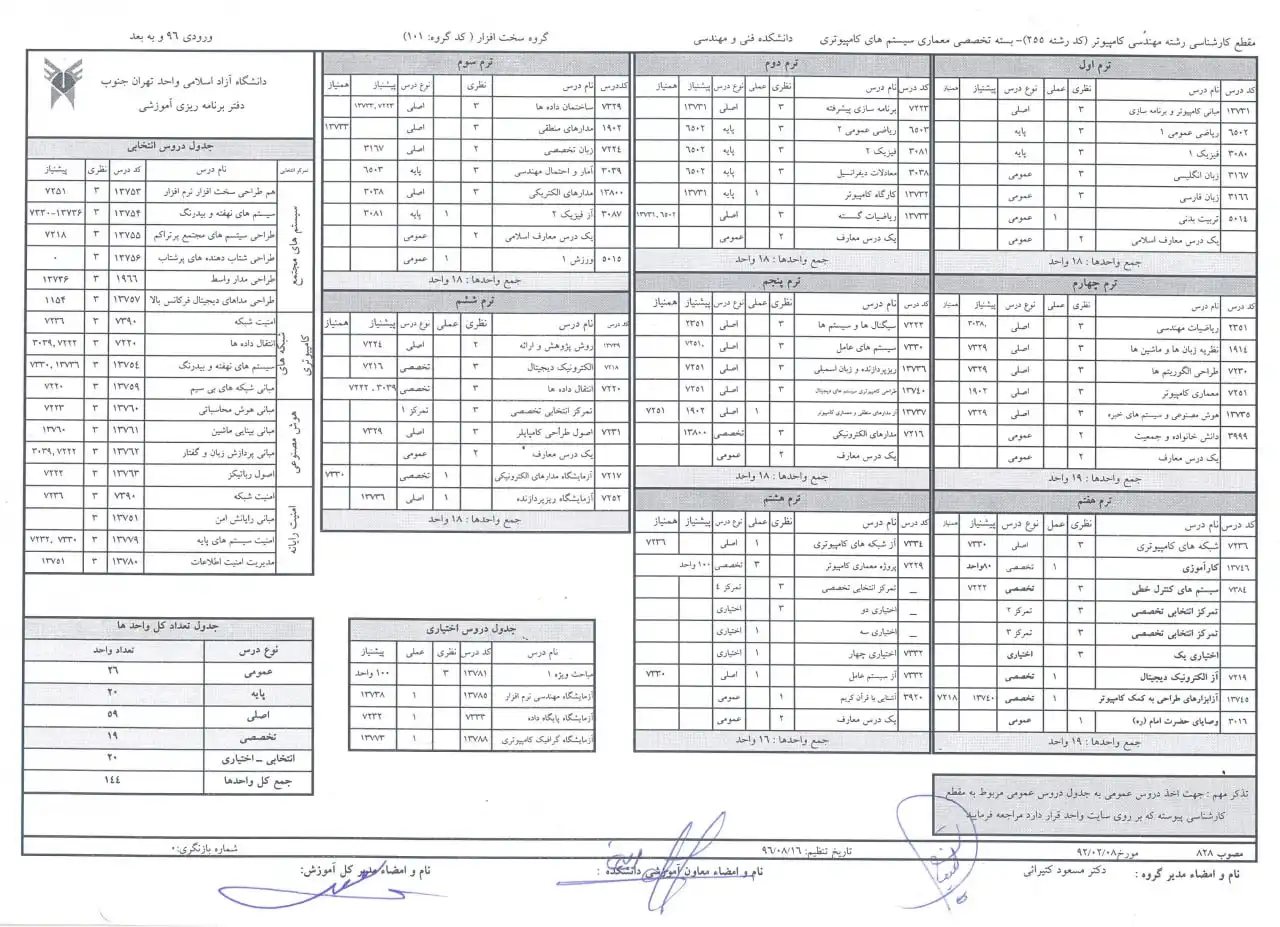 مقطع کارشناسی رشته مهندسی کامپیوتر (کد رشته ۲۵۵)- بسته تخصصی معماری سیستم های کامپیوتری دانشکده فنی و مهندسی گروه سخت افزار ( کد گروه: ۱۰۱) ورودی ۹۶ و به بعد
ترم اول
کد درس نام درس نظری عملی نوع درس پیشنیاز
۱۳۷۳۱ مبانی کامپیوتر و برنامه سازی ۳ اصلی
۶۵۰۲ ریاضی عمومی ۱ ۳ پایه
۳۰۸۰ فیزیک ۱ ۳ پایه
۳۱۶۷ زبان انگلیسی ۳ عمومی
۳۱۶۶ زبان فارسی ۳ عمومی
۵۰۱۴ تربیت بدنی ۱ عمومی
یک درس معارف اسلامی ۲ عمومی
جمع واحدها : ۱۸ واحد
ترم دوم
کد درس نام درس نظری عملی نوع درس پیشنیاز همنیاز
۷۲۲۳ برنامه سازی پیشرفته ۳ اصلی ۱۳۷۳۱
۶۵۰۳ ریاضی عمومی ۲ ۳ پایه ۶۵۰۲
۳۰۸۱ فیزیک ۲ ۳ پایه ۶۵۰۲
۳۰۳۸ معادلات دیفرانسیل ۳ پایه ۶۵۰۲
۱۳۷۳۲ کارگاه کامپیوتر ۱ پایه ۱۳۷۳۱
۱۳۷۳۳ ریاضیات گسسته ۳ اصلی ۱۳۷۳۱،۶۵۰۲
یک درس معارف ۲ عمومی
جمع واحدها : ۱۸ واحد
ترم سوم
کددرس نام درس نظری نوع درس پیشنیاز همنیاز
۷۳۲۹ ساختمان داده ها ۳ اصلی ۱۳۷۳۳،۷۲۲۳
۱۹۰۲ مدارهای منطقی ۳ اصلی ۱۳۷۳۳
۷۲۲۴ زبان تخصصی ۲ اصلی ۳۱۶۷
۳۰۳۹ آمار و احتمال مهندسی ۳ پایه ۶۵۰۳
۱۳۸۰۰ مدارهای الکتریکی ۳ اصلی ۳۰۳۸
۳۰۸۷ آز فیزیک ۲ ۱ پایه ۳۰۸۱
یک درس معارف اسلامی ۲ عمومی
۵۰۱۵ ورزش ۱ ۱ عمومی
جمع واحدها : ۱۸ واحد
دانشگاه آزاد اسلامی واحد تهران جنوب
دفتر برنامه ریزی آموزشی
ترم چهارم
کد درس نام درس نظری عملی نوع درس پیشنیاز
۲۳۵۱ ریاضیات مهندسی ۳ اصلی ۳۰۳۸
۱۹۱۴ نظریه زبان ها و ماشین ها ۳ اصلی ۷۳۲۹
۷۲۳۰ طراحی الگوریتم ها ۳ اصلی ۷۳۲۹
۷۲۵۱ معماری کامپیوتر ۳ اصلی ۱۹۰۲
۱۳۷۳۵ هوش مصنوعی و سیستم های خبره ۳ اصلی ۷۳۲۹
۳۹۹۹ دانش خانواده و جمعیت ۲ عمومی
یک درس معارف ۲ عمومی
جمع واحدها : ۱۹ واحد
ترم پنجم
کد درس نام درس نظری عملی نوع درس پیشنیاز همنیاز
۷۲۲۲ سیگنال ها و سیستم ها ۳ اصلی ۲۳۵۱
۷۳۳۰ سیستم های عامل ۳ اصلی ۷۲۵۱
۱۳۷۳۶ ریزپردازنده و زبان اسمبلی ۳ اصلی ۷۲۵۱
۱۳۷۴۰ طراحی کامپیوتری سیستم های دیجیتال ۳ اصلی ۷۲۵۱
۱۳۷۳۷ آز مدارهای منطقی و معماری کامپیوتر ۱ اصلی ۱۹۰۲ ۷۲۵۱
۷۲۱۶ مدارهای الکترونیکی ۳ تخصصی ۱۳۸۰۰
یک درس معارف ۲ عمومی
جمع واحدها : ۱۸ واحد
ترم ششم
کد درس نام درس نظری عملی نوع درس پیشنیاز همنیاز
۱۳۷۳۹ روش پژوهش و ارائه ۲ اصلی ۷۲۲۴
۷۲۱۸ الکترونیک دیجیتال ۳ تخصصی ۷۲۱۶
۷۲۲۰ انتقال داده ها ۳ تخصصی ۷۲۲۲ ، ۳۰۳۹
تمرکز انتخابی تخصصی ۳ تمرکز ۱
۷۲۳۱ اصول طراحی کامپایلر ۳ اصلی ۷۳۲۹
یک درس معارف ۲ عمومی
۷۲۱۷ آزمایشگاه مدارهای الکترونیکی ۱ تخصصی ۷۳۳۰
۷۲۵۲ آزمایشگاه ریزپردازنده ۱ اصلی ۱۳۷۳۶
جمع واحدها : ۱۸ واحد
ترم هفتم
کد درس نام درس نظری عمل نوع درس پیشنیاز
۷۲۳۶ شبکه های کامپیوتری ۳ اصلی ۷۳۳۰
۱۳۷۴۶ کارآموزی ۱ تخصصی ۸۰واحد
۷۳۸۴ سیستم های کنترل خطی ۳ تخصصی ۷۲۲۲
تمرکز انتخابی تخصصی ۳ تمرکز ۲
تمرکز انتخابی تخصصی ۳ تمرکز ۳
اختیاری یک ۳ اختیاری
۷۲۱۹ آز الکترونیک دیجیتال ۱ تخصصی
۱۳۷۴۵ آزابزارهای طراحی به کمک کامپیوتر ۱ تخصصی ۱۳۷۴۰ ۷۲۱۸
۳۰۱۶ وصایای حضرت امام (ره) ۱ عمومی
جمع واحدها : ۱۹ واحد
ترم هشتم
کد درس نام درس نظری عملی نوع درس پیشنیاز همنیاز
۷۳۳۴ آز شبکه های کامپیوتری ۱ اصلی ۷۲۳۶
۷۲۲۹ پروژه معماری کامپیوتر ۳ تخصصی ۱۰۰ واحد
_ تمرکز انتخابی تخصصی ۳ تمرکز ۴
اختیاری دو ۳ اختیاری
_ اختیاری سه ۱ اختیاری
۷۳۳۲ اختیاری چهار ۱ اختیاری
۷۳۳۲ آز سیستم عامل ۱ اصلی ۷۳۳۰
۳۹۲۰ آشنایی با قرآن کریم ۱ عمومی
یک درس معارف ۲ عمومی
جمع واحدها : ۱۶ واحد
جدول دروس انتخابی
نام درس کد درس نظری پیشنیاز
سیستم های مجتمع
هم طراحی سخت افزار نرم افزار ۱۳۷۵۳ ۳ ۷۲۵۱
سیستم های نهفته و بیدرنگ ۱۳۷۵۴ ۳ ۷۳۳۰-۱۳۷۳۶
طراحی سیستم های مجتمع پرتراکم ۱۳۷۵۵ ۳ ۷۲۱۸
طراحی شتاب دهنده های پرشتاب ۱۳۷۵۶ ۳ ۰
طراحی مدار واسط ۱۹۶۶ ۳ ۱۳۷۳۶
طراحی مداهای دیجیتال فرکانس بالا ۱۳۷۵۷ ۳ ۱۱۵۴
شبکه های کامپیوتری
امنیت شبکه ۷۳۹۰ ۳ ۷۲۳۶
انتقال داده ها ۷۲۲۰ ۳ ۳۰۳۹،۷۲۲۲
سیستم های نهفته و بیدرنگ ۱۳۷۵۴ ۳ ۷۳۳۰،۱۳۷۳۶
مبانی شبکه های بی سیم ۱۳۷۵۹ ۳ ۷۲۲۰
هوش مصنوعی
مبانی هوش محاسباتی ۱۳۷۶۰ ۳ ۷۲۲۳
مبانی بینایی ماشین ۱۳۷۶۱ ۳ ۱۳۷۶۰
مبانی پردازش زبان و گفتار ۱۳۷۶۲ ۳ ۳۰۳۹،۷۲۲۲
اصول رباتیکز ۱۳۷۶۳ ۳ ۷۲۲۲
امنیت رایانه
امنیت شبکه ۷۳۹۰ ۳ ۷۲۳۶
مبانی رایانش امن ۱۳۷۵۱ ۳
امنیت سیستم های پایه ۱۳۷۷۹ ۳ ۷۲۳۲، ۷۳۳۰
مدیریت امنیت اطلاعات ۱۳۷۸۰ ۳ ۱۳۷۵۱
جدول دروس اختیاری
نام درس کد درس نظری عملی پیشنیاز
مباحث ویژه ۱ ۱۳۷۸۱ ۳ ۱۰۰ واحد
آزمایشگاه مهندسی نرم افزار ۱۳۷۸۵ ۱ ۱۳۷۳۸
آزمایشگاه پایگاه داده ۷۳۳۳ ۱ ۷۲۳۲
آزمایشگاه گرافیک کامپیوتری ۱۳۷۸۸ ۱ ۱۳۷۷۳
جدول تعداد کل واحد ها
نوع درس تعداد واحد
عمومی ۲۶
پایه ۲۰
اصلی ۵۹
تخصصی ۱۹
انتخابی – اختیاری ۲۰
جمع کل واحدها ۱۴۴
تذکر مهم : جهت اخذ دروس عمومی به جدول دروس عمومی مربوط به مقطع
کارشناسی پیوسته که بر روی سایت واحد قرار دارد مراجعه فرمایید
مصوب ۸۲۸ مورخ۹۲/۰۲/۰۸ تاریخ تنظیم: ۹۶/۰۸/۱۶ شماره بازنگری:۰
نام و امضاء مدیر گروه : دکتر مسعود کثیرائی نام و امضاء معاون آموزشی دانشکده : نام و امضاء مدیر کل آموزش: